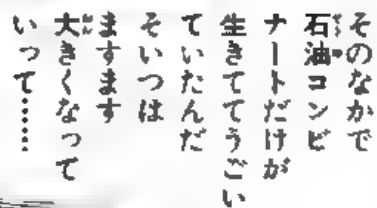 そのなかで
石油コンビ
ナートだけが
生きてうごい
ていたんだ
そいつは
ますます
大きくなって
いって……